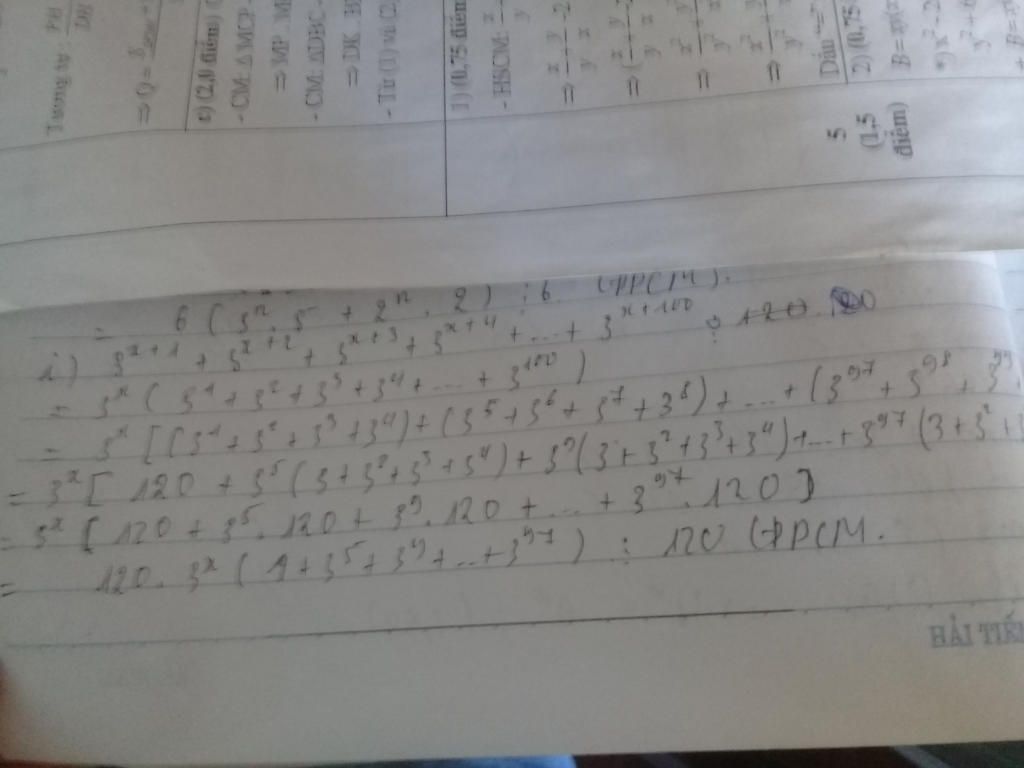 Tương tự:
⇒ Q =
c) (2,0 điểm)
- CM: ΔMCP
⇒ MP . M
- CM: ΔDBC
⇒ DK . B
- Từ (1) và (2)
1) (0,75 điểm)
- HSCM: x/y
⇒ x/y + y/x
⇒ (x/y + y/x
⇒ x²/y² + y²/x²
⇒ x²/y² + y²/x²
Dấu "="
2) (0,75
B =
*) x² - 2
y² +
5
(1,5
điểm)
= 6 ( 3ⁿ . 5 + 2ⁿ . 2 ) ⋮ 6 (ĐPCM).
i) 3^{x+1} + 3^{x+2} + 3^{x+3} + 3^{x+4} + ... + 3^{x+100} ⋮ 120
= 3^x ( 3^1 + 3^2 + 3^3 + 3^4 + ... + 3^{100} )
= 3^x [ (3^1 + 3^2 + 3^3 + 3^4) + (3^5 + 3^6 + 3^7 + 3^8) + ... + (3^{97} + 3^{98} + 3^{99}
= 3^x [ 120 + 3^5 (3 + 3^2 + 3^3 + 3^4) + 3^9 (3 + 3^2 + 3^3 + 3^4) + ... + 3^{97} (3 + 3^2 +
= 3^x [ 120 + 3^5 . 120 + 3^9 . 120 + ... + 3^{97} . 120 ]
= 120 . 3^x ( 1 + 3^5 + 3^9 + ... + 3^{97} ) ⋮ 120 (ĐPCM.
HẢI TIẾN